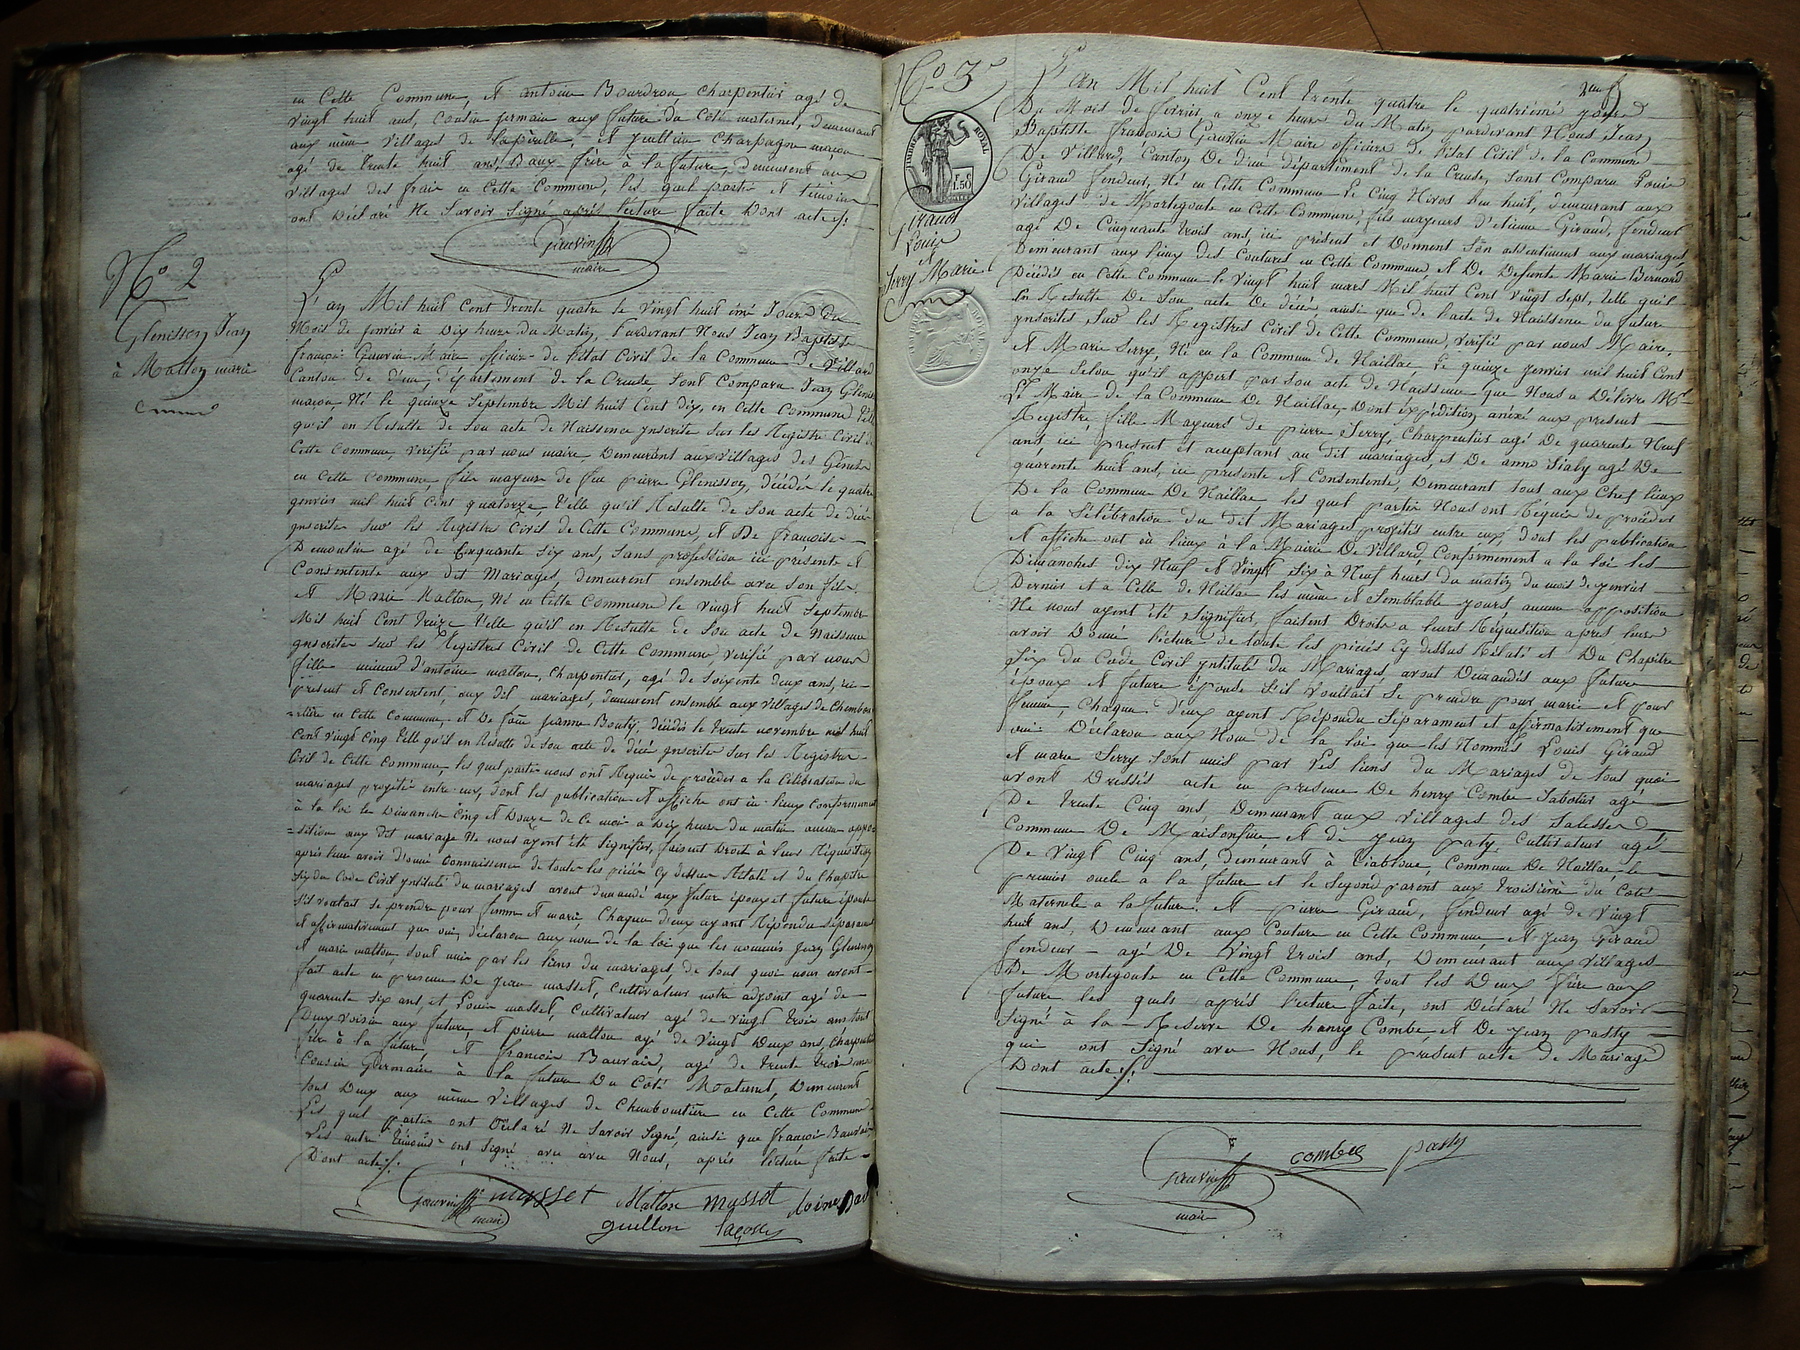 en Cette Commune, et antoine Bourdron, Charpentier agé de
vingt huit ans, cousin germain aux future du Coté maternel, demeurant
aux même villages de Lapérelle, et Guilliin Charpagne maçon
agé de trente huit ans, Baux frère à la future, demeurent aux
villages des frais en Cette Commune, les quel partie et témoins
ont Déclaré Ne Savoir Signé après lecture faite Dont acte
Gauvin
maire
No 2
Glenisson Jean
à Malton marie
L'an Mil huit Cent trente quatre le vingt huit ème Jour du
Mois de Jenvier à Dix heure du Matin, Pardevant Nous Jean Baptiste
françois Gauvin Maire officier de l'état Civil de la Commune de Villard
Canton de Dun, Département de la Creuse, Sont Comparu Jean Glenisson
maçon, Né le quinze Septembre Mil huit Cent Dix, en Cette Commune telle
qu'il en Résulte de Son acte de Naissence ynscrite Sur les Registre Civil de
Cette Commune, verifié par nous maire, Demeurant aux villages des Genets
en Cette Commune, fils mayeur de feu pierre Glenisson, décédé le quatre
jenvier mil huit Cent quatorze, telle qu'il Résulte de Son acte de décé
ynscrite Sur les Registre Civil de Cette Commune, et De françoise
Demoulin agé de Cinquante Six ans, Sans profession ici présente et
Consentente aux dit Mariages, demeurent ensemble avec Son fils.
et Marie Malton, Né en Cette Commune le vingt huit Septembre
Mil huit Cent treize telle qu'il en Résulte de Son acte de Naissence
ynscrite Sur les Registres Civil de Cette Commune, verifié par nous
fille mineur d'antoine malton, Charpentier, agé de Soixente deux ans, ici
présent et Consentent, aux dit mariages, demeurent ensemble aux villages de Chembou
=tière en Cette Commune, et De feue Jeanne Bouty, décédé le trente novembre mil huit
Cent vingt Cinq telle qu'il en Résulte de Son acte de décé ynscrite Sur les Registre
Civil de Cette Commune, les quel partie nous ont Requis de procèder a la Célébration du
mariages projeté entre eux, dont les publication et affiche ont eu lieux Conformement
à la loi les Dimanche Cinq et Douze de Ce moi a Dix heure du matin aucun oppo
=sition aux dit mariage Ne nous ayent été Signifier, faisent Droit à leur Réquisition
après leur avoir Donné Connaissence de toute les pièces Cy dessus Relaté et du Chapitre
Six du Code Civil yntitulé du mariages avont demandé aux future époux et future épouse
s'il voulait se prendre pour femme et marie, Chaque d'eux ayant Répondu Séparament
et affirmativement que oui, déclarons aux nom de la loi que les nommés Jean Glenisson
et marie malton, Sont unis par les liens du mariages, de tout quoi nous avont
fait acte en présence De Jean masset, Cultivateur notre adjoint agé de
quarente Six ans, et Louis masset, Cultivateur agé de vingt trois ans tout
Deux voisin aux future, et pierre malton agé de vingt Deux ans, Charpentier
frère à la future, et françois Bauvais, agé de trente trois ans
Cousin Germain à la future Du Coté Maternel, Demeurent
tout Deux aux même villages de Chemboutière en Cette Commune
Les quel partie ont Déclaré Ne Savoir Signé, ainsi que françois Bauvais
Les autre témoins ont Signé avec avec Nous, après lecture faite
Dont acte
Gauvin musset Malton mussot
maire guillon
No 3
TIMBRE ROYAL
1.50
Giraud
Louis
et
Serry Marie
L'an Mil huit Cent trente quatre le quatrième jour
Du Mois de février, a onze heure du Matin pardevant Nous Jean
Baptiste françois Gauvin Maire officier de l'état Civil de la Commune
De Villard, Canton De Dun département de la Creuse, Sont Comparu Louis
Giraud fendeur, Né en Cette Commune le Cinq Nivos l'en huit, demeurant aux
villages de Mortegoute en Cette Commune, fils mayeurs d'etienne Giraud, fendeur
agé De Cinquante trois ans, ici présent et Donnent Son assentiment aux mariages
Demeurant aux lieux des Coutures en Cette Commune et De Defunte Marie Bernard
Décédés en Cette Commune le vingt huit mars Mil huit Cent vingt Sept, telle qu'il
En Resulte De Son acte De décé, ainsi que de l'acte de Naissence du future
ynscrites Sur les Registres Civil de Cette Commune, verifié par nous Maire,
et Marie Serry, Né en la Commune de Naillac, le quinze jenvier mil huit Cent
onze Selon qu'il appert par Son acte de Naissence que Nous a Délivré Mr
Le Maire de la Commune De Naillac, Dont expédition anèxé aux présent
Registre, fille Mayeurs de pierre Serry, Charpentier agé De quarente Neuf
ans, ici présent et acceptant au dit mariages, et De anne Sialy agé De
quarente huit ans, ici présente et Consentente, Demeurant tous aux Chef lieux
De la Commune De Naillac les quel partie Nous ont Requis de procèder
a la Célébration du dit Mariages projétés entre eux, dont les publication
et affiche ont eu lieux à la Mairie De Villard, Conformement a la loi les
Dimanches dix Neuf et Vingt Six à Neuf heurs du matin du mois de jenvier
Dernier et a Celle de Naillac les même et Semblable yours, aucune opposition
Ne nous ayent été Signifier, faisent Droits a leurs Réquisition apres leurs
avoir Donné lecture de toute les pièces Cy dessus Relaté et Du Chapitre
Six du Code Civil yntitulé du Mariages, avont Demandés aux future
époux et future épouse S'il voullait Se prendre pour marie et pour
femme, Chaque d'eux ayent Répondu Séparament et affirmativement que
oui. Déclarons aux Nom de la loi que les Nommés Louis Giraud
et marie Serry Sont unis par les liens du Mariages de tous quoi
avont Dressés acte en présence De henry Combe Sabotier agé
De trente Cinq ans, Demeurant aux villages des Salesses
Commune De Maisonfeine et de Jean paty, Cultivateur agé
De vingt Cinq ans, demeurant à Ciabloux, Commune De Naillac, le
premier oncle a la future et le Segond parent aux troisième du Coté
Maternele a la future. et pierre Giraud, fendeur agé de vingt
huit ans, Demeurant aux Couture en Cette Commune, et Jean Giraud
fendeur agé De vingt trois ans, Demeurant aux villages
De Mortegoute en Cette Commune, tout les Deux frère aux
future les quels après lecture faite, ont Déclaré Ne Savoir
Signé à la Reserve De henry Combe, et De Jean passty
qui ont Signé avec Nous, le présent acte de Mariage
Dont acte
Gauvin combes passty
maire